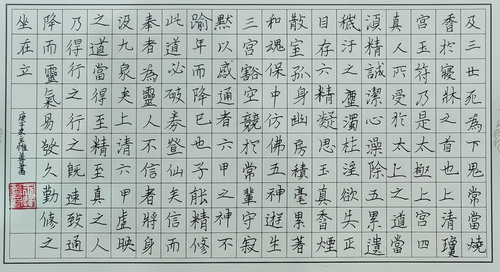 及三世死為下鬼常當燒
香於寢牀之首也上清瓊
宮玉符乃是太極上宮四
真人所受於太上之道當
須精誠潔心澡除五累遺
穢汙之塵濁杜淫欲失正
目存六精凝思玉真香煙
散室孤身幽房積毫累著
和魂保中仿佛五神遊生
三宮豁空競於常輩守寂
默以感通者六甲之神不
踰年而降已也子能精修
此道必破券登仙矣信而
奉者為靈人不信者將身
沒九泉矣上清六甲虛映
之道當得至精至真之人
乃得行之行之既速致通
降而靈氣易發久勤修之
坐在立